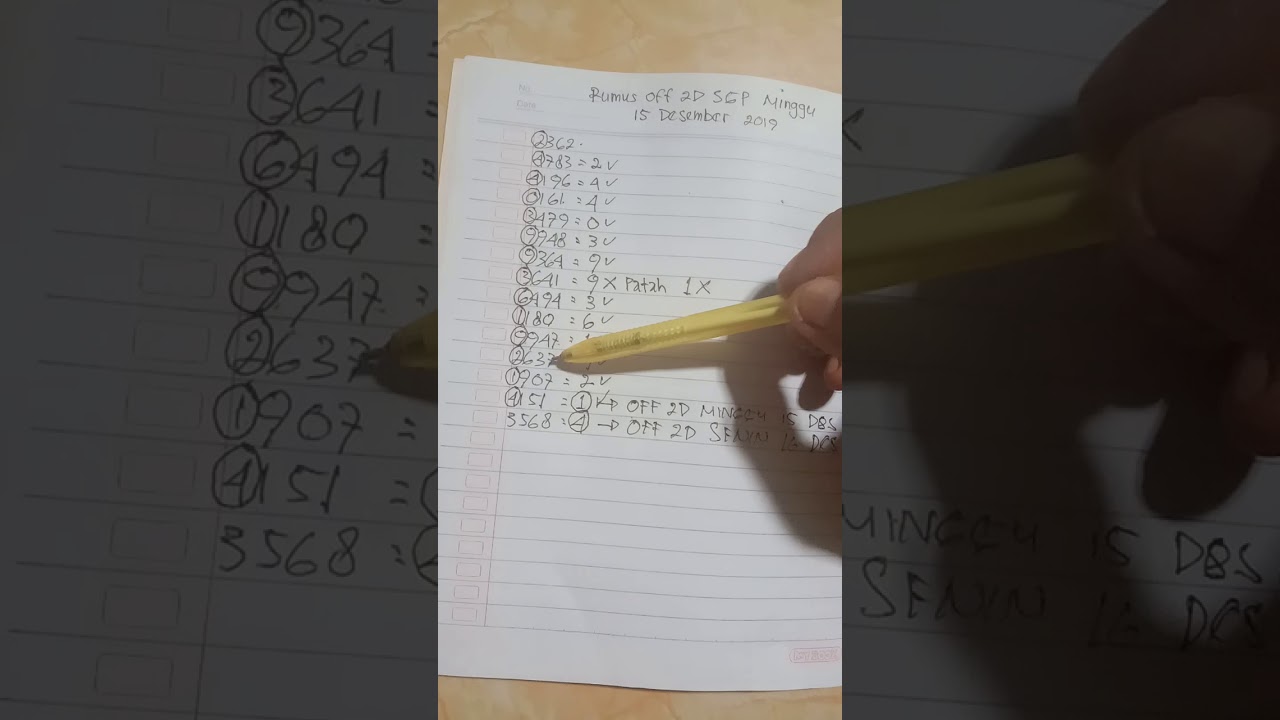 No.
Date
Rumus Off 2D SGP Minggu
15 Desember 2019
2362.
4783 = 2 ✓
4196 = 4 ✓
0161 = 4 ✓
3479 = 0 ✓
9948 = 3 ✓
9364 = 9 ✓
3641 = 9 X Patah 1 X
6494 = 3 ✓
1180 = 6 ✓
9947 =
2637
1907 = 2 ✓
4151 = 1 ✓→ OFF 2D MINGGU 15 DES
3568 = 4 → OFF 2D SENIN 16 DES